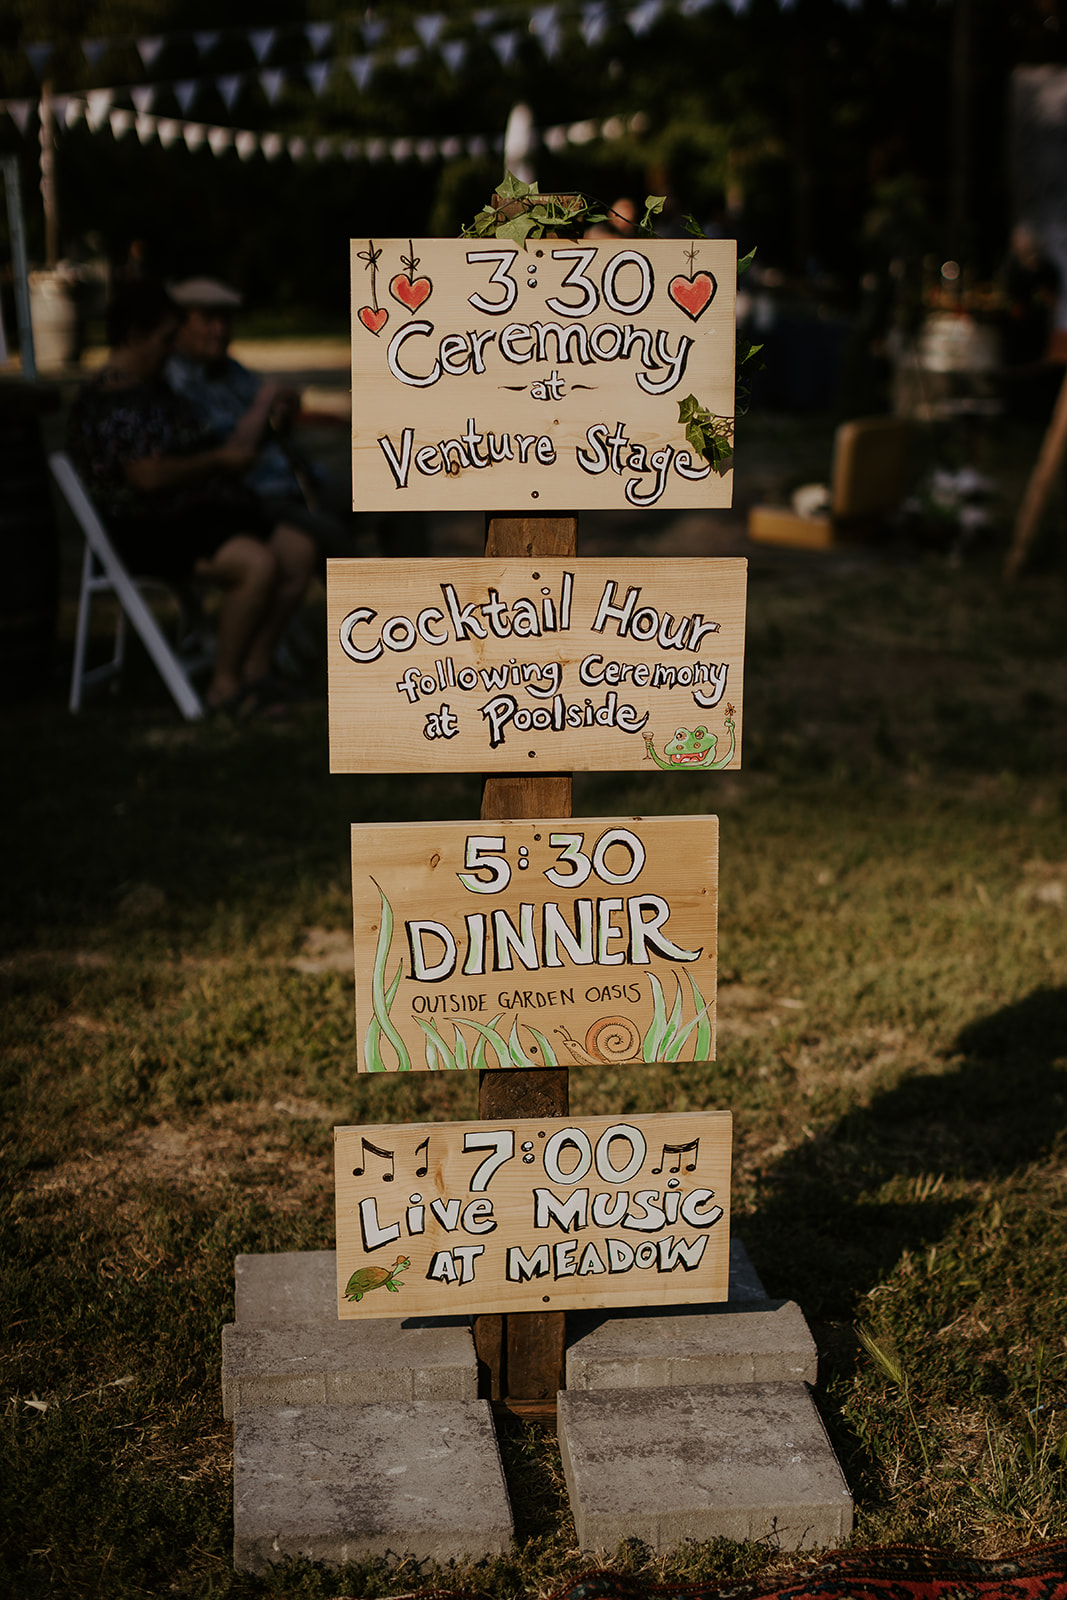 3:30
Ceremony
~at~
Venture Stage
Cocktail Hour
following Ceremony
at Poolside
5:30
DINNER
OUTSIDE GARDEN OASIS
7:00
Live Music
AT MEADOW